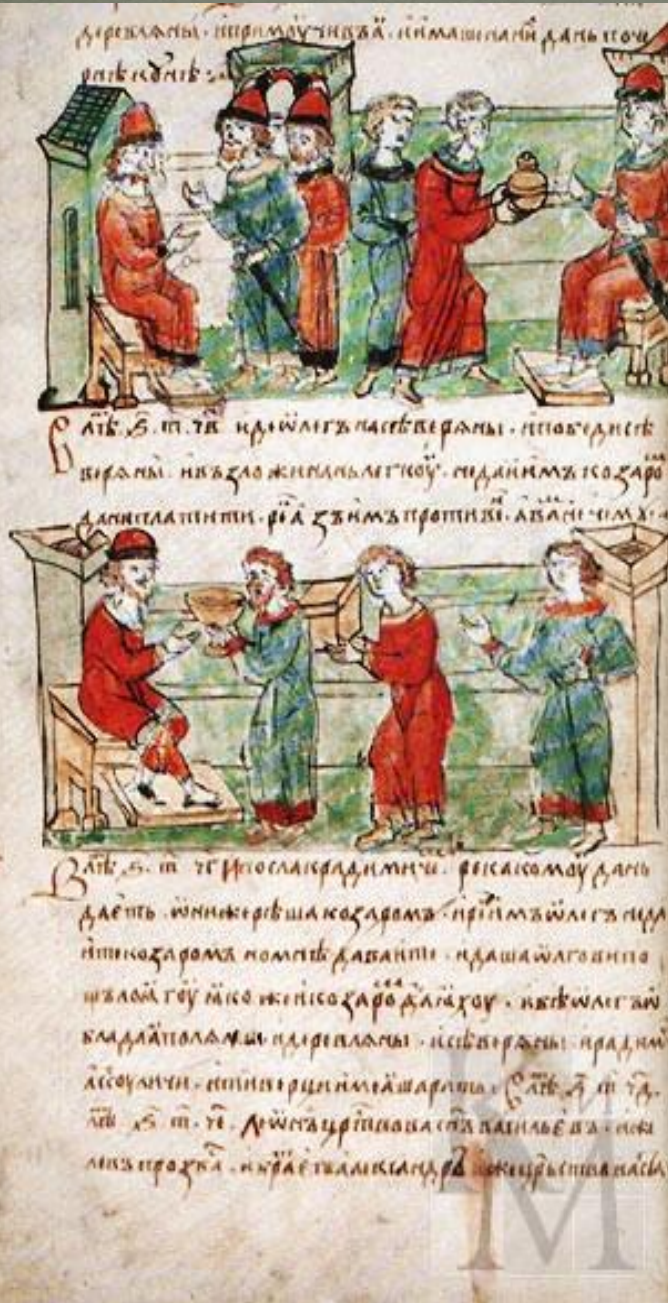 деревляны · и примоучивъ ꙗ · и имаше на ни дань по че
рнѣ кунѣ :
В лѣт҃ · ѕ҃ · т҃ · ч҃в · иде ѡлегъ на сѣверяны · и победи сѣ
веряны · и възложи на нь легкоу · не даи имъ козаро
дани платити · рек҃ аз̾ъ имъ противе · а вамъ не чемꙋ ·
В лѣт҃ · ѕ҃ · т҃ · ч҃г · И посла к радимиче · река комоу дань
даете · ѡни же реша козаром · и реч҃ имъ ѡлегъ не да
ите козаромъ но мнѣ даваите · и даша ѡлгови по
щьлягоу ꙗко же и козаро даꙗхоу · и бѣ ѡлегъ ѡ
бладаꙗ поляны · и деревляны · и сѣверяны · и радим
а с соуличи · и тиверци имеꙗше рать · В лѣт҃ · ѕ҃ · т҃ · ч҃д ·
лѣт҃ · ѕ҃ · т҃ · ч҃е · Леѡнъ цр҃твова сн҃ъ васильевъ · иже
левъ прозва · и бра е҃ александръ иже цр҃ьствоваста
КМ